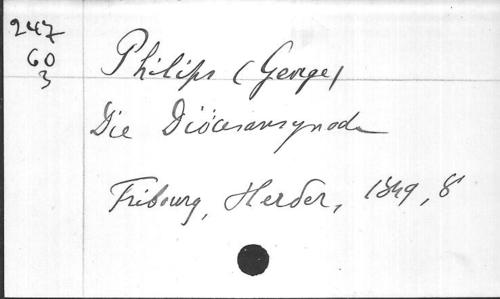 247
60
3
Philips (George)
Die Diöcesansynode
Fribourg, Herder, 1849, 8°